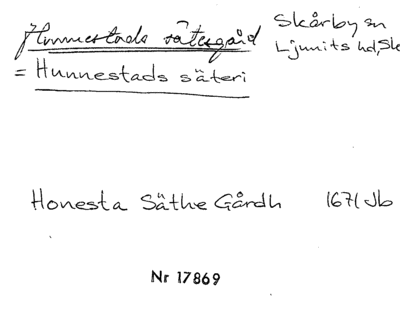 Hunnestads sätesgård Skårby sn
= Hunnestads säteri Ljunits hd, Sk
Honesta Säthe Gårdh 1671 Jb
Nr 17869